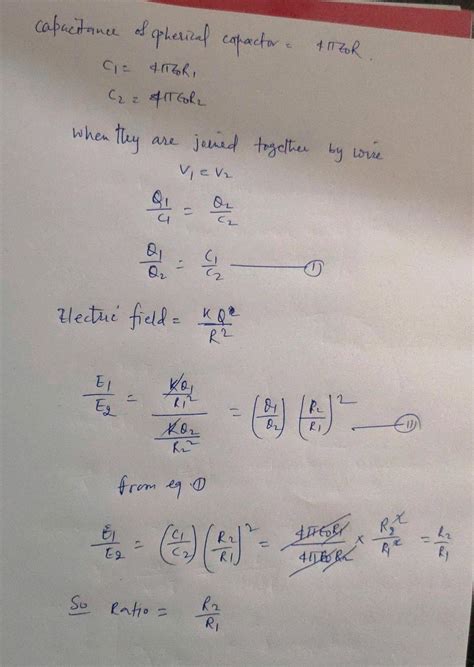 capacitance of spherical capactor = 4πε0R.
C1 = 4πε0R1
C2 = 4πε0R2
when they are joined together by wire
V1 = V2
Q1/C1 = Q2/C2
Q1/Q2 = C1/C2 ——— (1)
Electric field = KQ/R^2
E1/E2 = (KQ1/R1^2)/(KQ2/R2^2) = (Q1/Q2) (R2/R1)^2 ——— (11)
from eq (1)
E1/E2 = (C1/C2) (R2/R1)^2 = 4πε0R1/4πε0R2 × R2^2/R1^2 = R2/R1
So Ratio = R2/R1